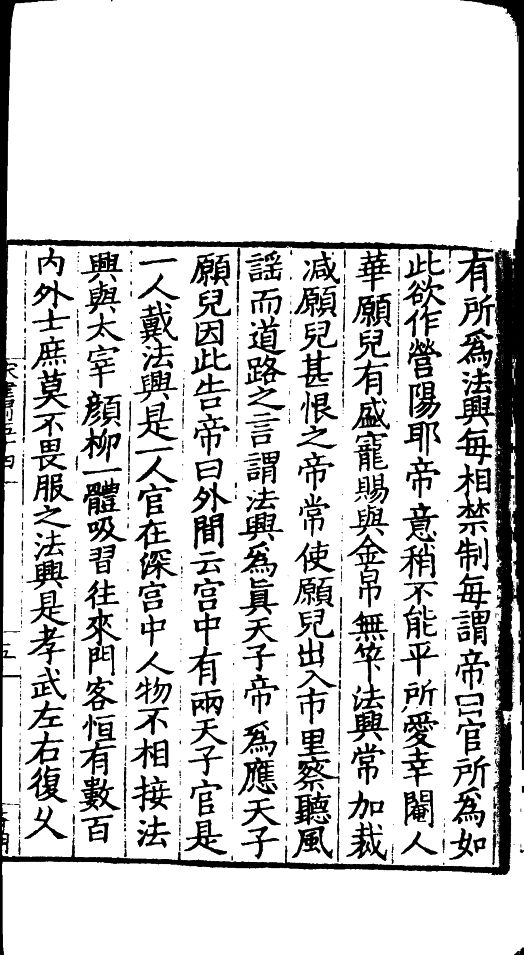 有所為法興每相禁制每謂帝曰官所為如
此欲作營陽耶帝意稍不能平所愛幸閹人
華願兒有盛寵賜與金帛無筭法興常加裁
減願兒甚恨之帝常使願兒出入市里察聽風
謡而道路之言謂法興為眞天子帝為應天子
願兒因此告帝曰外間云宫中有兩天子官是
一人戴法興是一人官在深宫中人物不相接法
興與太宰顔柳一體吸習往來門客恒有數百
内外士庶莫不畏服之法興是孝武左右復乆